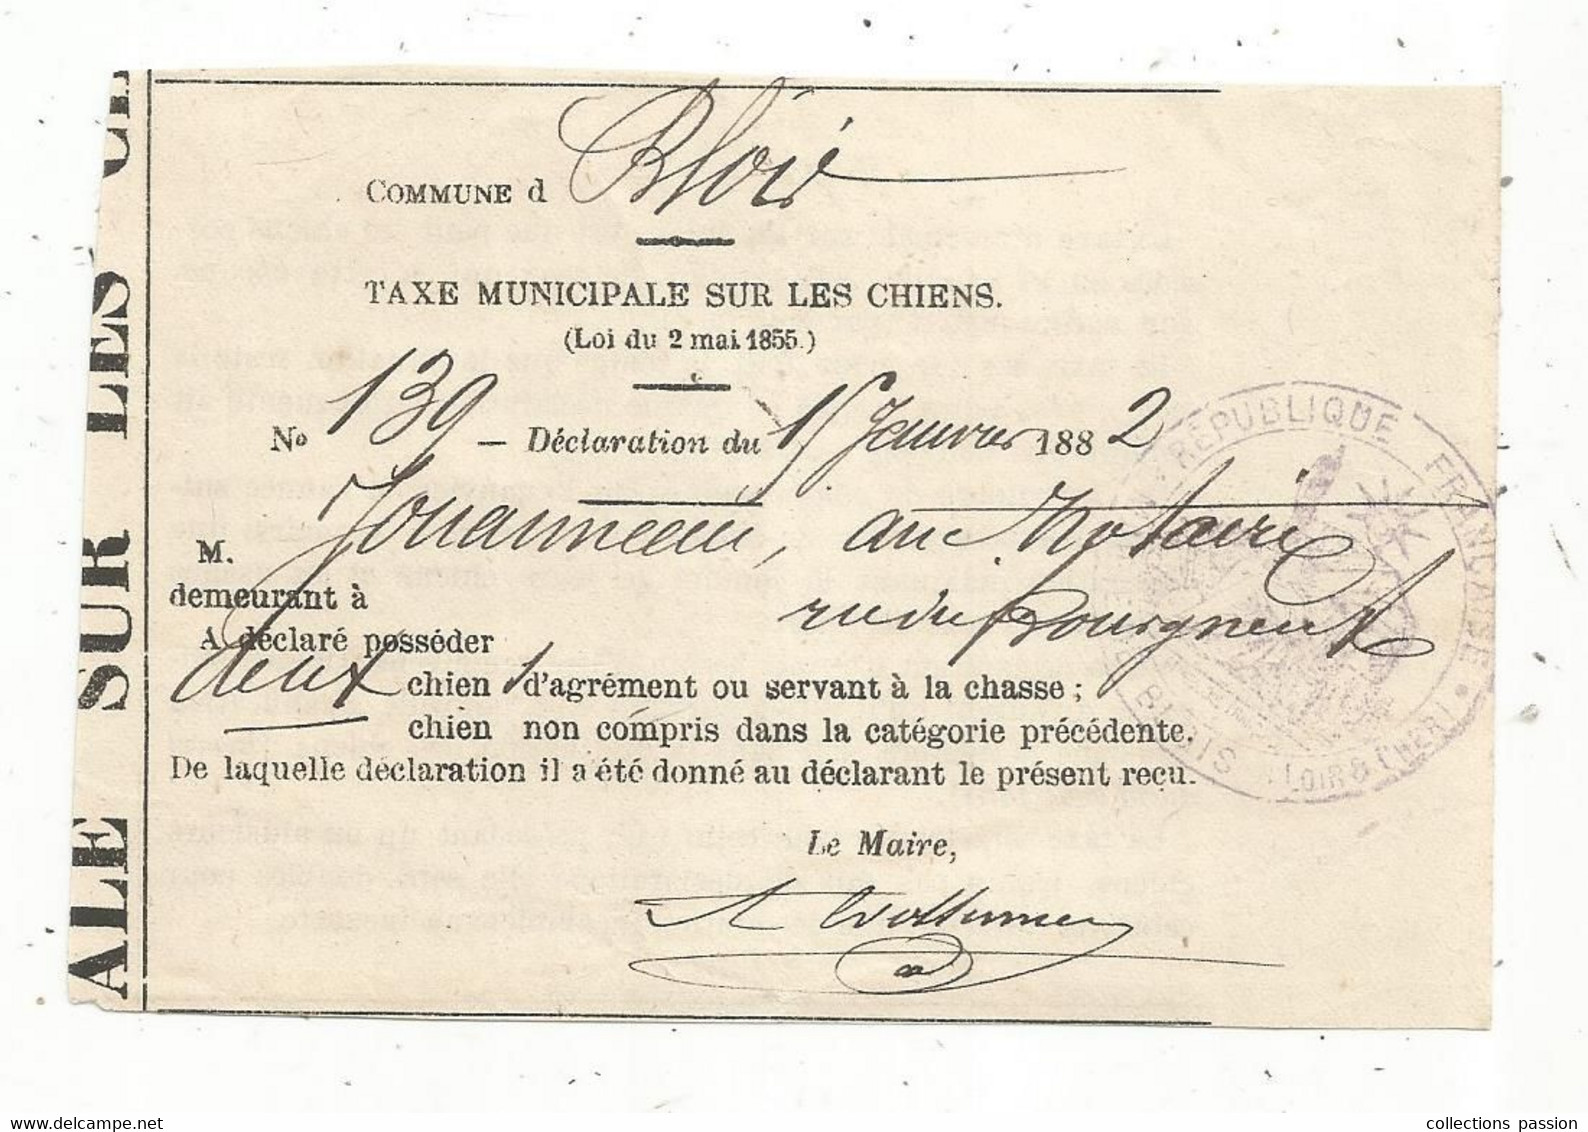 ALE SUR LES
COMMUNE d Blois
TAXE MUNICIPALE SUR LES CHIENS.
(Loi du 2 mai 1855.)
No 139 — Déclaration du 15 Janvier 1882
M. Jouanneau, anc Notaire
demeurant à rue du Bourgneuf
A déclaré posséder
deux chiens d'agrément ou servant à la chasse ;
chien non compris dans la catégorie précédente.
De laquelle déclaration il a été donné au déclarant le présent reçu.
Le Maire,
RÉPUBLIQUE FRANÇAISE
BLOIS LOIR & CHER
collections passion